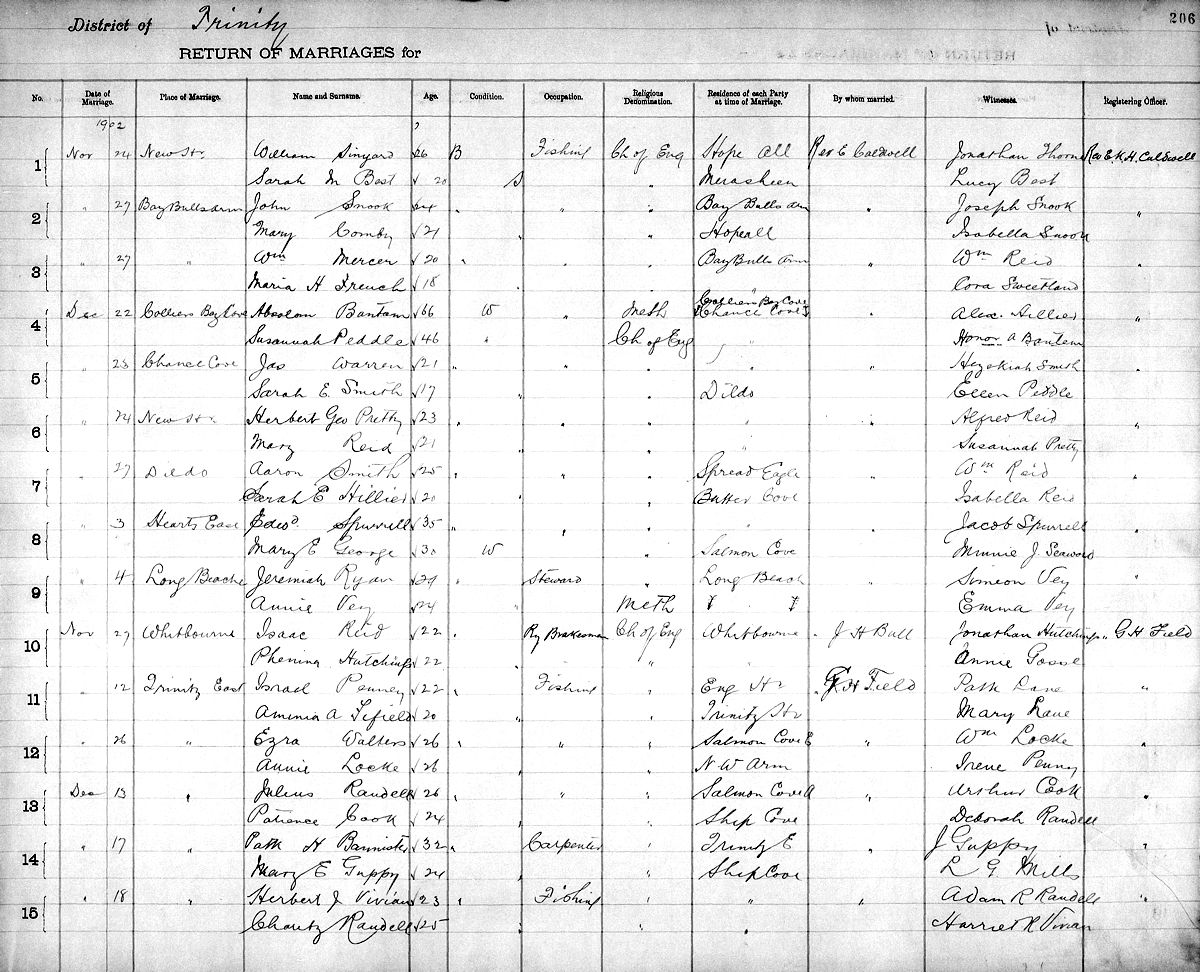 206
District of Trinity
RETURN OF MARRIAGES for
No. Date of Marriage. Place of Marriage. Name and Surname. Age. Condition. Occupation. Religious Denomination. Residence of each Party at time of Marriage. By whom married. Witnesses. Registering Officer.
1902
1 Nov 24 New Hr William Sinyard 26 B Fishing Ch of Eng Hope All Rev E Caldwell Jonathan Thorne Rev E. K. H. Caldwell
Sarah M Best 20 S " Merasheen Lucy Best
2 " 27 Bay Bulls arm John Snook 24 " " " Bay Bulls arm " Joseph Snook "
Mary Comby 21 " " Hopeall Isabella Snook
3 " 27 " Wm Mercer 20 " " " Bay Bulls Arm " Wm Reid "
Maria H French 18 " " " Cora Sweetland
4 Dec 22 Colliers Bay Cove Absolom Bantam 66 W " Meth Colliers Bay Cove Chance Cove " Alex. Hillier "
Susannah Peddle 46 " Ch of Eng " Honor A Bantem
5 " 23 Chance Cove Jas Warren 21 " " " " " Hezekiah Smith "
Sarah E. Smith 17 " " Dildo Ellen Peddle
6 " 24 New Hr Herbert Geo Pretty 23 " " " " " Alfred Reid "
Mary Reid 21 " " " Susannah Pretty
7 " 27 Dildo Aaron Smith 25 " " " Spread Eagle " Wm Reid "
Sarah E Hillier 20 " " Butter Cove Isabella Reid
8 " 3 Hearts Ease Edwd. Spurrell 35 " " " " " Jacob Spurrell "
Mary E George 30 W " Salmon Cove Minnie J. Seaward
9 " 4 Long Beach Jeremiah Ryan 29 " Steward " Long Beach " Simeon Vey "
Annie Vey 24 " Meth " " Emma Vey
10 Nov 27 Whitbourne Isaac Reid 22 " Ry Brakesman Ch of Eng Whitbourne " J H Bull Jonathan Hutchings " G H Field
Phenina Hutchings 22 " " " Annie Gosse
11 " 12 Trinity East Israel Penney 22 " Fishing " Eng Hr " G H Field Patk Lane "
Aminia A Fifield 20 " " Trinity Hr Mary Lane
12 " 26 " Ezra Walters 26 " " " Salmon Cove E " Wm Locke "
Annie Locke 26 " " N W Arm Irene Penny
13 Dec 13 " Julius Randell 26 " " " Salmon Cove " Arthur Cook "
Patience Cook 24 " " Ship Cove Deborah Randell
14 " 17 " Patk H Bannister 32 " Carpenter " Trinity E " J Guppy "
Mary E Guppy 24 " " Ship Cove L G Mills
15 " 18 " Herbert J Vivian 23 " Fishing " " " Adam R Randell "
Charity Randell 25 " " " Harriet R Vivian